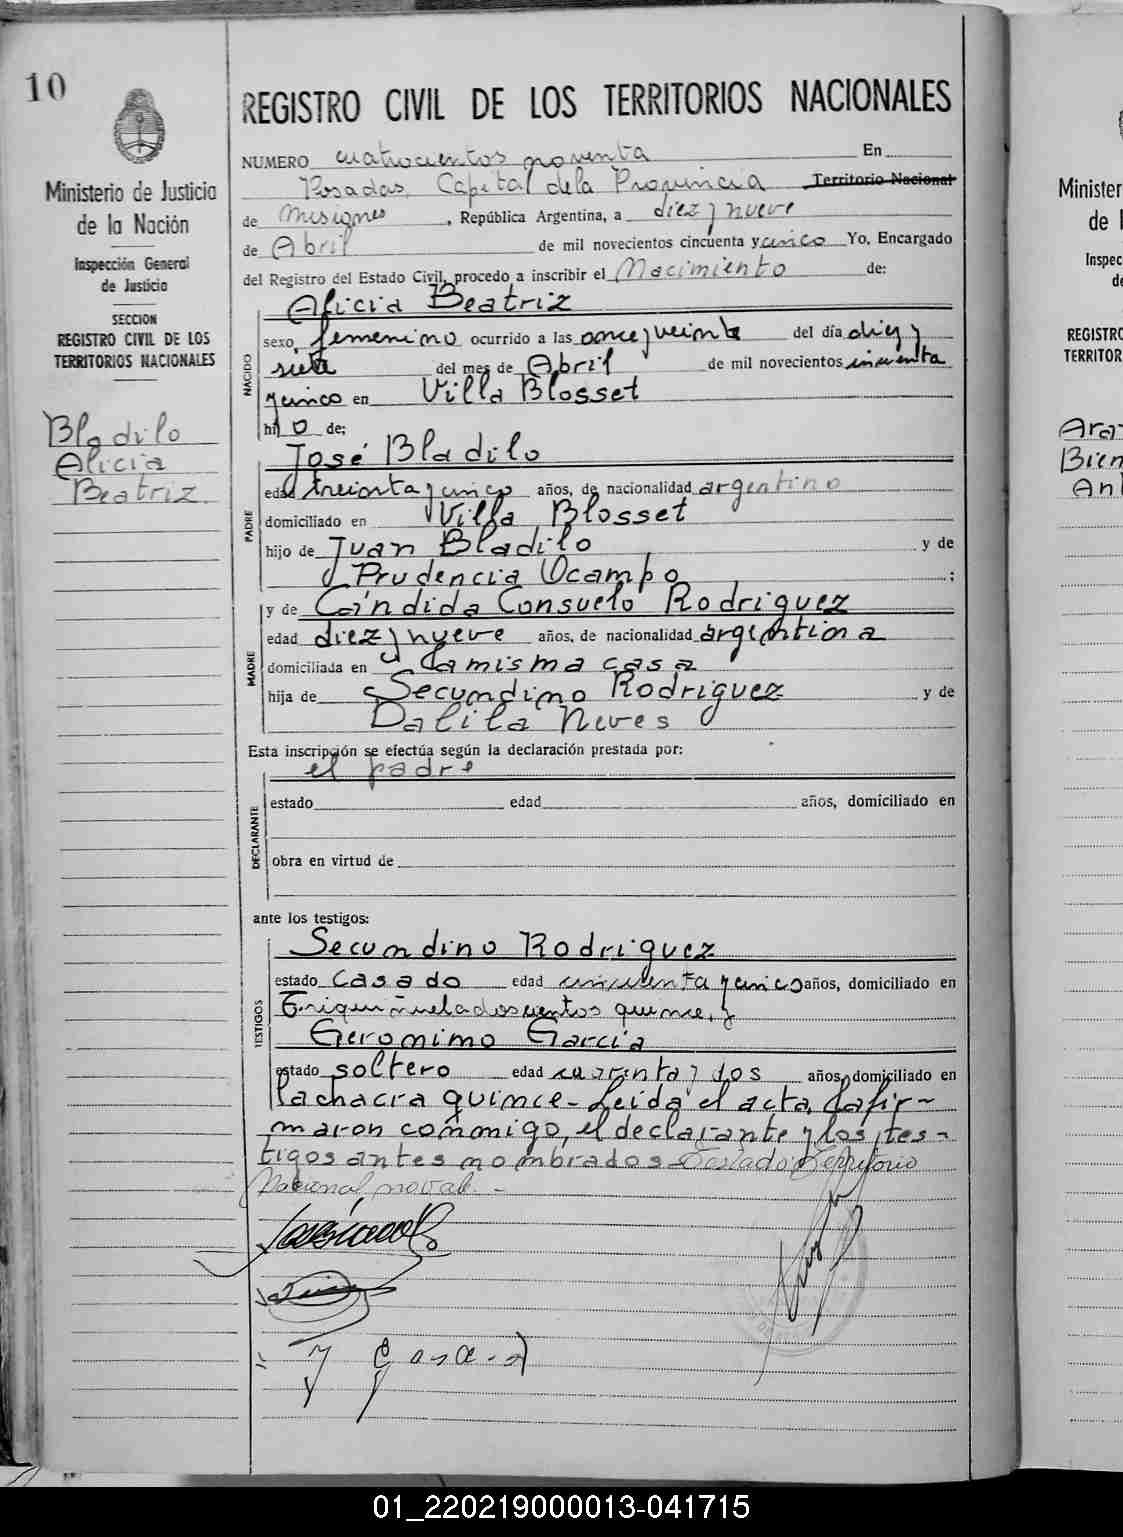 10
Ministerio de Justicia
de la Nación
Inspección General
de Justicia
SECCION
REGISTRO CIVIL DE LOS
TERRITORIOS NACIONALES
Bladilo
Alicia
Beatriz
REGISTRO CIVIL DE LOS TERRITORIOS NACIONALES
NUMERO cuatrocientos noventa En
Posadas, Capital de la Provincia Territorio Nacional
de Misiones, República Argentina, a diez y nueve
de Abril de mil novecientos cincuenta y cinco Yo, Encargado
del Registro del Estado Civil, procedo a inscribir el Nacimiento de:
Alicia Beatriz
NACIDO
sexo, femenino ocurrido a las once y veinte del día diez y
siete del mes de Abril de mil novecientos cincuenta
y cinco en Villa Blosset
hijo de;
José Bladilo
PADRE
edad treinta y cinco años, de nacionalidad argentino
domiciliado en Villa Blosset
hijo de Juan Bladilo y de
Prudencia Ocampo ;
y de Cándida Consuelo Rodriguez
MADRE
edad diez y nueve años, de nacionalidad argentina
domiciliada en la misma casa
hija de Secundino Rodriguez y de
Dalila Neves
Esta inscripción se efectúa según la declaración prestada por:
el padre
DECLARANTE
estado edad años, domiciliado en
obra en virtud de
ante los testigos:
TESTIGOS
Secundino Rodriguez
estado casado edad cincuenta y cinco años, domiciliado en
doscientos quince, y
Geronimo Garcia
estado soltero edad cuarenta y dos años, domiciliado en
la chacra quince - Leida el acta, la fir-
maron conmigo, el declarante y los tes-
tigos antes nombrados - Testado: Territorio
Nacional no vale -
Minister
de
Inspec
de
REGISTRO
TERRITOR
Bien
Ant
01_220219000013-041715